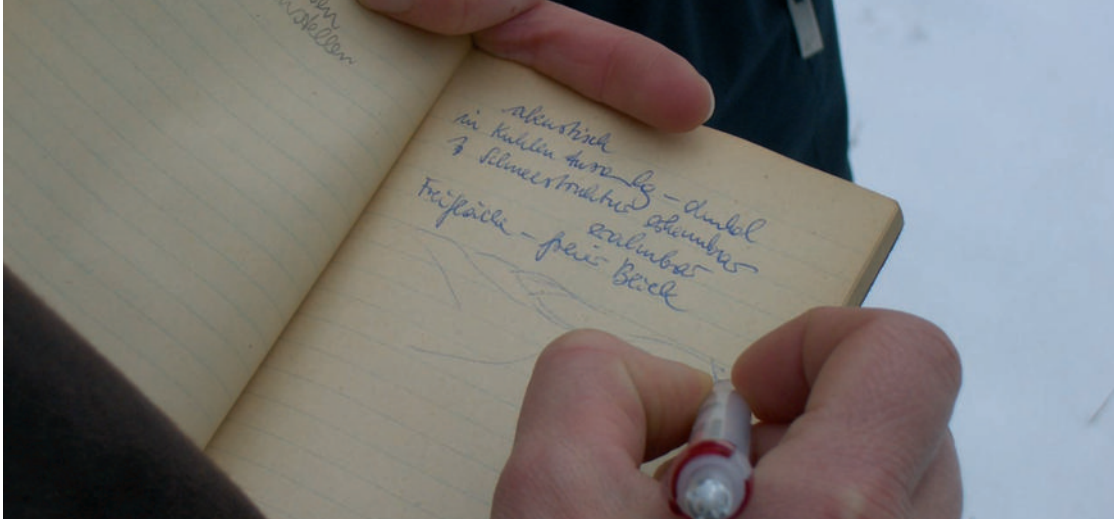 stellen
akustisch
in Kuhlen - dunkel
Schneestruktur erkennbar
erahnbar
Freifläche - freier Blick